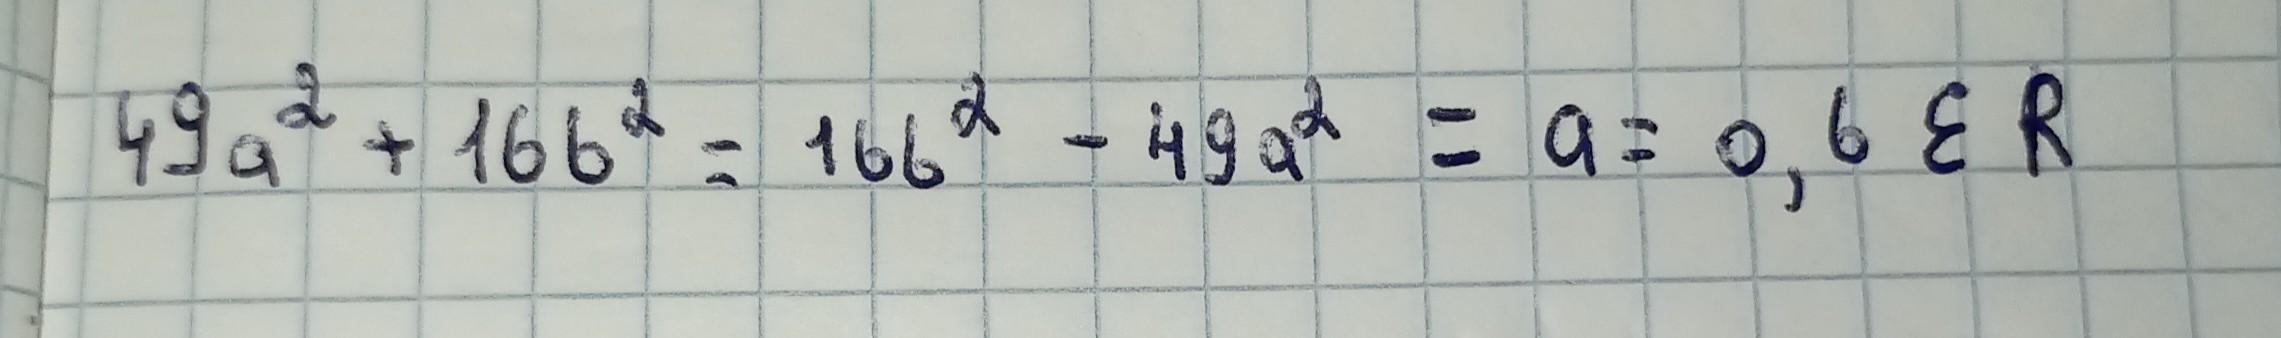 49a² + 16b² = 16b² - 49a² = a = 0, b ∈ R